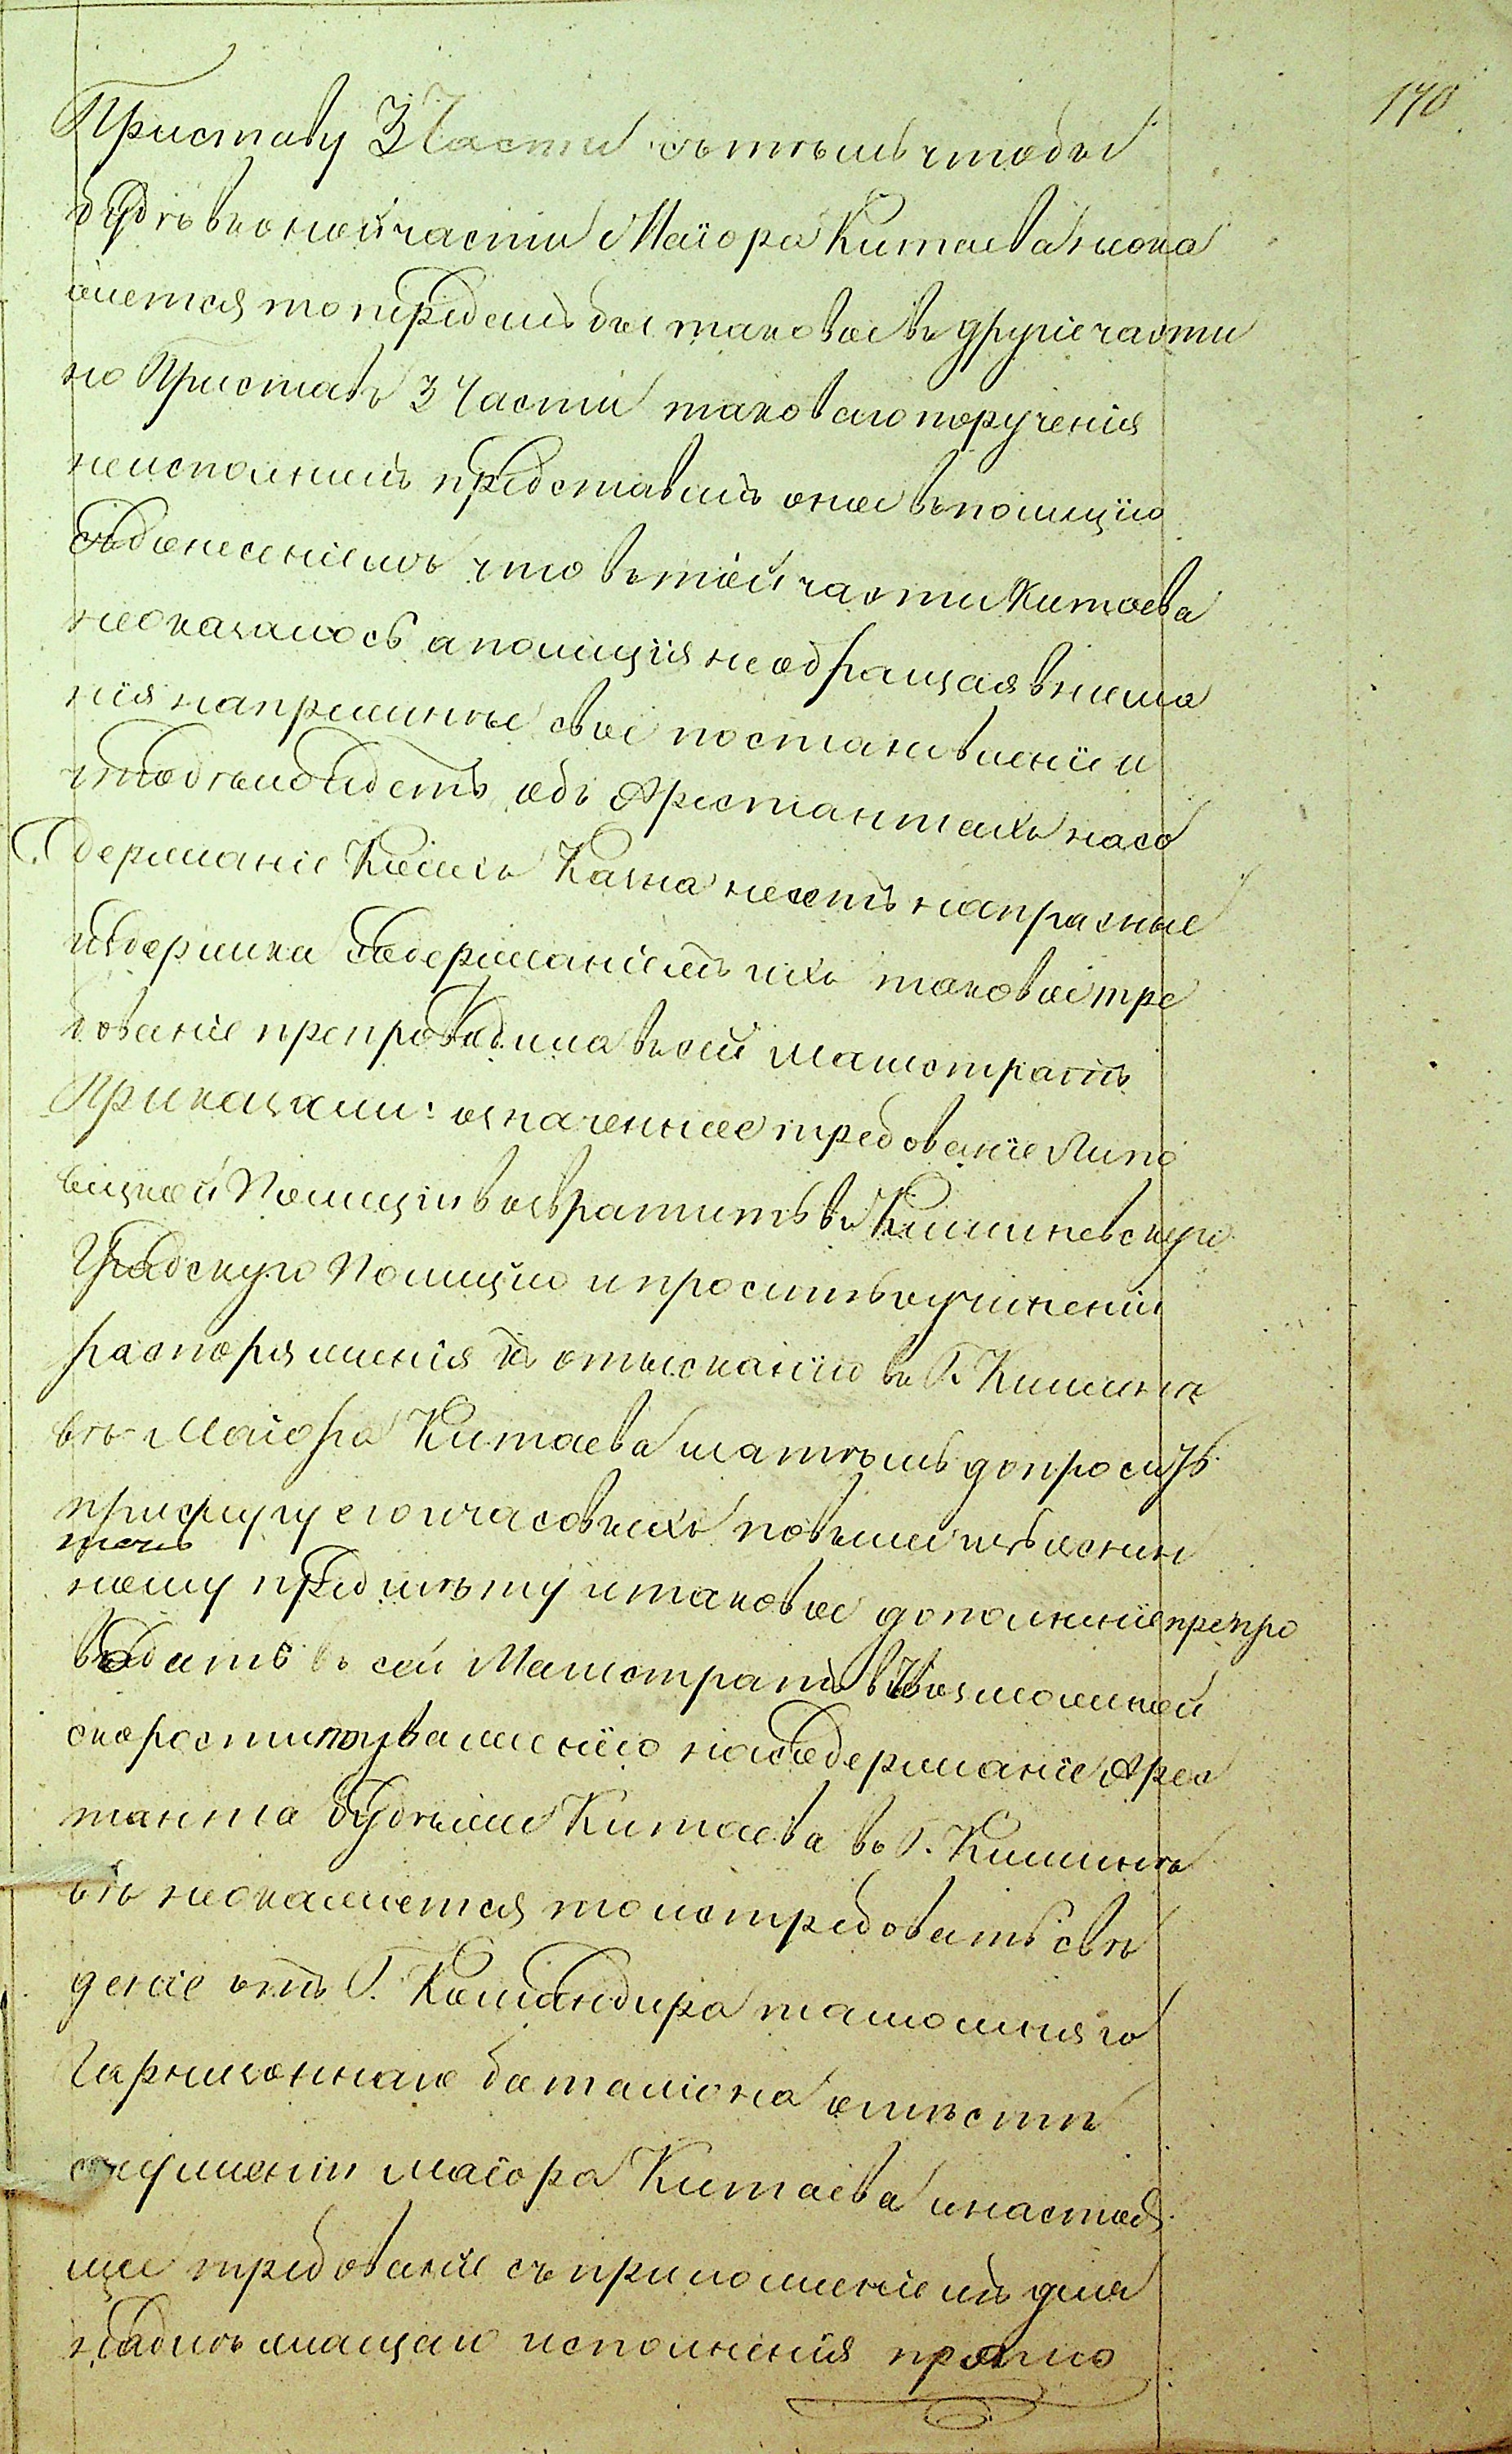 170
Приставу 3 Части съ тѣмъ чтобы
будѣ въ оной части Маіора Китаева неока
жется то передалъ бы таковое въ другіе части
но Приставъ 3 Части таковаго порученія
неисполнилъ представилъ оное въ полицію
съ донесеніемъ что въ той части Китаева
неоказалось а полиція необращая внима
нія на прямыя свое постановленіи и
что объ Арестантахъ на со
держаніе коихъ Казна несетъ напрасные
издержки содержаніемъ ихъ таковое тре
бованіе препроводила въ сей Магистратъ
Приказали: означенное требованіе Липо
вецкой Полиціи возвратить въ Кишиневскую
Градскую Полицію и просить о учиненіи
распоряженія къ отысканію въ Г. Кишине
вѣ Маіора Китаева а затѣмъ допросить
прислугу его и часовыхъ по вышеизъяснен
ному предмѣту и таковое дополненіе препро
водить въ сей Магистратъ въ возможной
скорости по уваженію на содержаніе Арес
танта будѣже Китаева въ Г. Кишине
вѣ неокажется то истребовать свѣ
деніе отъ Г. Командира тамошняго
Гарнизоннаго баталіона о мѣстѣ
служеніи маіора Китаева и настоя
щее требованіе съ приложеніемъ для
надлѣжащаго исполненія прямо